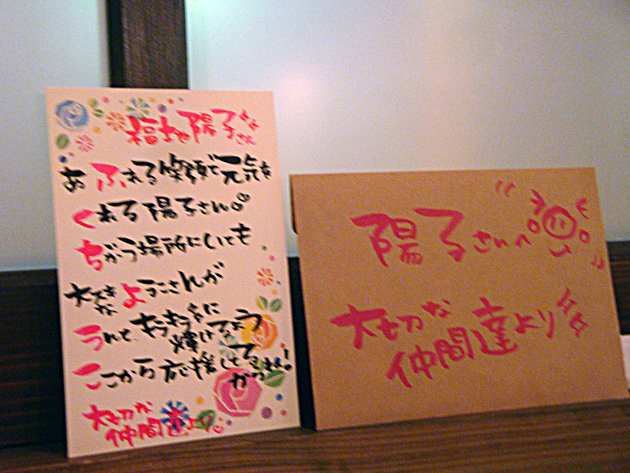 福地陽子さん
あふれる笑顔で元気を
くれる陽子さん。
ちがう場所にいても
大好きなようこさんが
輝けるよう
ここから応援してるからね!
大切な
仲間達より
陽子さんへ
大切な
仲間達より